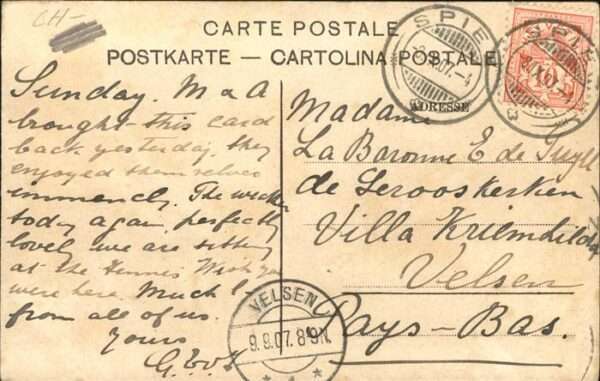 CH-
CARTE POSTALE
POSTKARTE — CARTOLINA POSTALE
SPIEZ
ADRESSE
SPIEZ
Sunday. M & A
brought this card
back yesterday, they
enjoyed themselves
immencly. The weather
today again perfectly
lovely we are sitting
at the Tennis Wish you
were here. Much
from all of us.
Yours
Madame
La Baronne E de Tuyll
de Serooskerken
Villa Kriemhilda
Velsen
Pays-Bas.
VELSEN
9.9.07.8-9N.
1